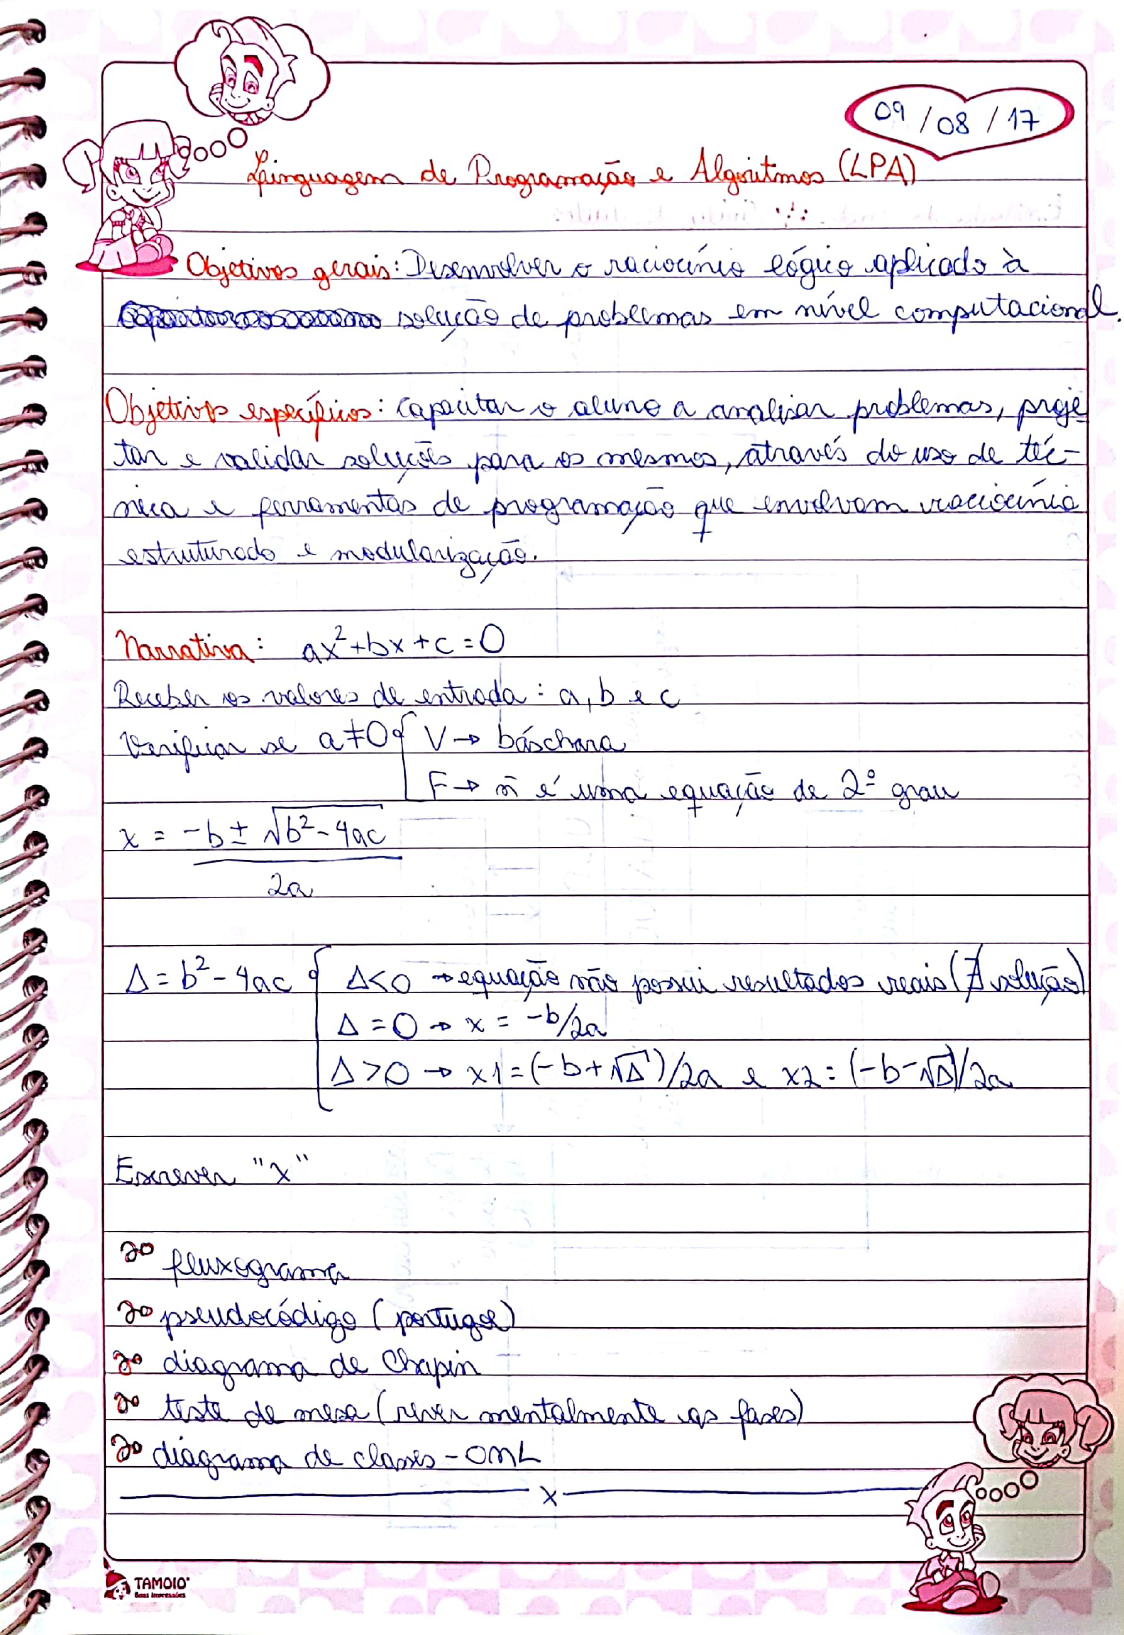 09/08/17
Linguagem de Programação e Algoritmos (LPA)
Objetivos gerais: Desenvolver o raciocínio lógico aplicado à
solução de problemas em nível computacional.
Objetivos específicos: capacitar o aluno a analisar problemas, proje
tar e validar soluções para os mesmos, através do uso de téc-
nica e ferramentas de programação que envolvam raciocínio
estruturado e modularização.
Narrativa: ax²+bx+c=0
Receber os valores de entrada: a, b e c
Verificar se a≠0 { V → báschara
F → ñ é uma equação de 2º grau
x = -b ± √b²-4ac
2a
Δ = b² - 4ac { Δ<0 → equação não possui resultados reais (∄ solução)
Δ = 0 → x = -b/2a
Δ>0 → x1 = (-b+√Δ)/2a e x2 = (-b-√Δ)/2a
Escrever "x"
fluxograma
pseudocódigo (portugol)
diagrama de Chapin
teste de mesa (rever mentalmente as fases)
diagrama de classes - OML
x
TAMOIO
Boas Impressões